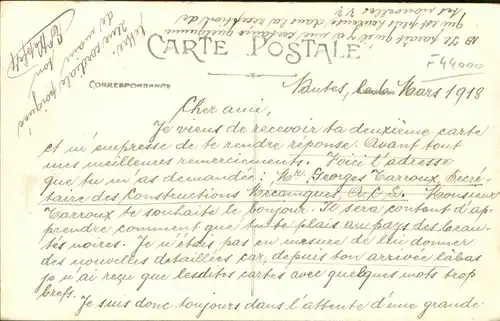 CARTE POSTALE
CORRESPONDANCE
F 44000
Nantes, le 6 Mars 1918
Cher ami,
Je viens de recevoir ta deuxième carte
et m'empresse de te rendre réponse. Avant tout
mes meilleures remerciements. Voici l'adresse
que tu m'as demandée: Mr. Georges Carroux, Secré-
taire des Constructions Mecaniques, A.C.L. Monsieur
Carroux te souhaite le bonjour. Il sera content d'ap-
prendre comment que tu te plais au pays des beau-
tés noires. Je n'étais pas en mesure de lui donner
des nouvelles detaillées car, depuis ton arrivée làbas
je n'ai reçu que lesdites cartes avec quelques mots trop
brefs.
Je suis donc toujours dans l'attente d'une grande
lettre.
Une cordiale poignée
de main
ton
NB Il paraît qu'il y a une certaine quelqu'une
qui est plus heureuse dans la réception de
tes nouvelles ??